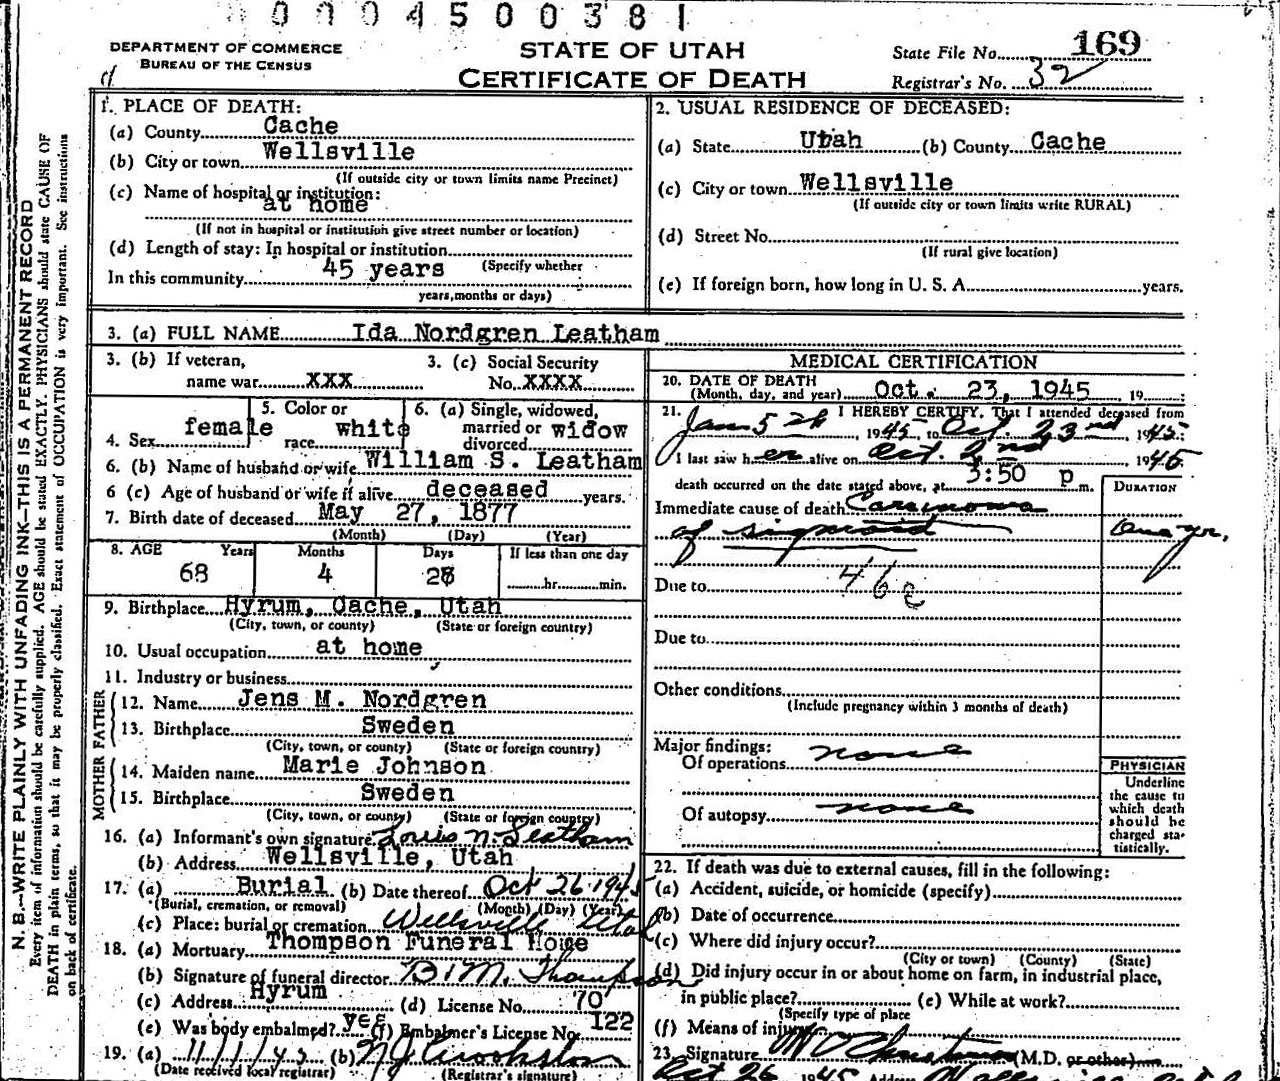 0 0 0 4 5 0 0 3 8 1
DEPARTMENT OF COMMERCE
BUREAU OF THE CENSUS
STATE OF UTAH
CERTIFICATE OF DEATH
State File No. 169
Registrar's No. 32
N. B.—WRITE PLAINLY WITH UNFADING INK—THIS IS A PERMANENT RECORD
Every item of information should be carefully supplied. AGE should be stated EXACTLY. PHYSICIANS should state CAUSE OF
DEATH in plain terms, so that it may be properly classified. Exact statement of OCCUPATION is very important. See instructions
on back of certificate.
1. PLACE OF DEATH:
(a) County Cache
(b) City or town Wellsville
(If outside city or town limits name Precinct)
(c) Name of hospital or institution:
at home
(If not in hospital or institution give street number or location)
(d) Length of stay: In hospital or institution
In this community 45 years (Specify whether
years, months or days)
2. USUAL RESIDENCE OF DECEASED:
(a) State Utah (b) County Cache
(c) City or town Wellsville
(If outside city or town limits write RURAL)
(d) Street No.
(If rural give location)
(e) If foreign born, how long in U. S. A. years.
3. (a) FULL NAME Ida Nordgren Leatham
3. (b) If veteran,
name war XXX
3. (c) Social Security
No. XXXX
4. Sex female
5. Color or
race white
6. (a) Single, widowed,
married or
divorced widow
6. (b) Name of husband or wife William S. Leatham
6 (c) Age of husband or wife if alive deceased years.
7. Birth date of deceased May 27, 1877
(Month) (Day) (Year)
8. AGE Years Months Days If less than one day
68 4 26 hr. min.
9. Birthplace Hyrum, Cache, Utah
(City, town, or county) (State or foreign country)
10. Usual occupation at home
11. Industry or business
FATHER
12. Name Jens M. Nordgren
13. Birthplace Sweden
(City, town, or county) (State or foreign country)
MOTHER
14. Maiden name Marie Johnson
15. Birthplace Sweden
(City, town, or county) (State or foreign country)
16. (a) Informant's own signature Louis N. Leatham
(b) Address Wellsville, Utah
17. (a) Burial (b) Date thereof Oct 26 1945
(Burial, cremation, or removal) (Month) (Day) (Year)
(c) Place: burial or cremation Wellsville Utah
18. (a) Mortuary Thompson Funeral Home
(b) Signature of funeral director B I M. Thompson
(c) Address Hyrum (d) License No. 70
(e) Was body embalmed? yes (f) Embalmer's License No. 122
19. (a) 11/1/45 (b) N J Crookston
(Date received local registrar) (Registrar's signature)
MEDICAL CERTIFICATION
20. DATE OF DEATH
(Month, day, and year) Oct. 23, 1945 19
21. I HEREBY CERTIFY, That I attended deceased from
Jan 5 th, 1945, to Oct 23rd, 1945:
I last saw her alive on Oct. 2nd 1945
death occurred on the date stated above, at 3:50 p m.
DURATION
Immediate cause of death Carcinoma
of sigmoid One yr.
Due to 46e
Due to
Other conditions
(Include pregnancy within 3 months of death)
Major findings:
Of operations none
Of autopsy none
PHYSICIAN
Underline
the cause to
which death
should be
charged sta-
tistically.
22. If death was due to external causes, fill in the following:
(a) Accident, suicide, or homicide (specify)
(b) Date of occurrence
(c) Where did injury occur?
(City or town) (County) (State)
(d) Did injury occur in or about home on farm, in industrial place,
in public place? (e) While at work?
(Specify type of place
(f) Means of injury
23. Signature (M.D. or other)
Oct 26 1945 Address